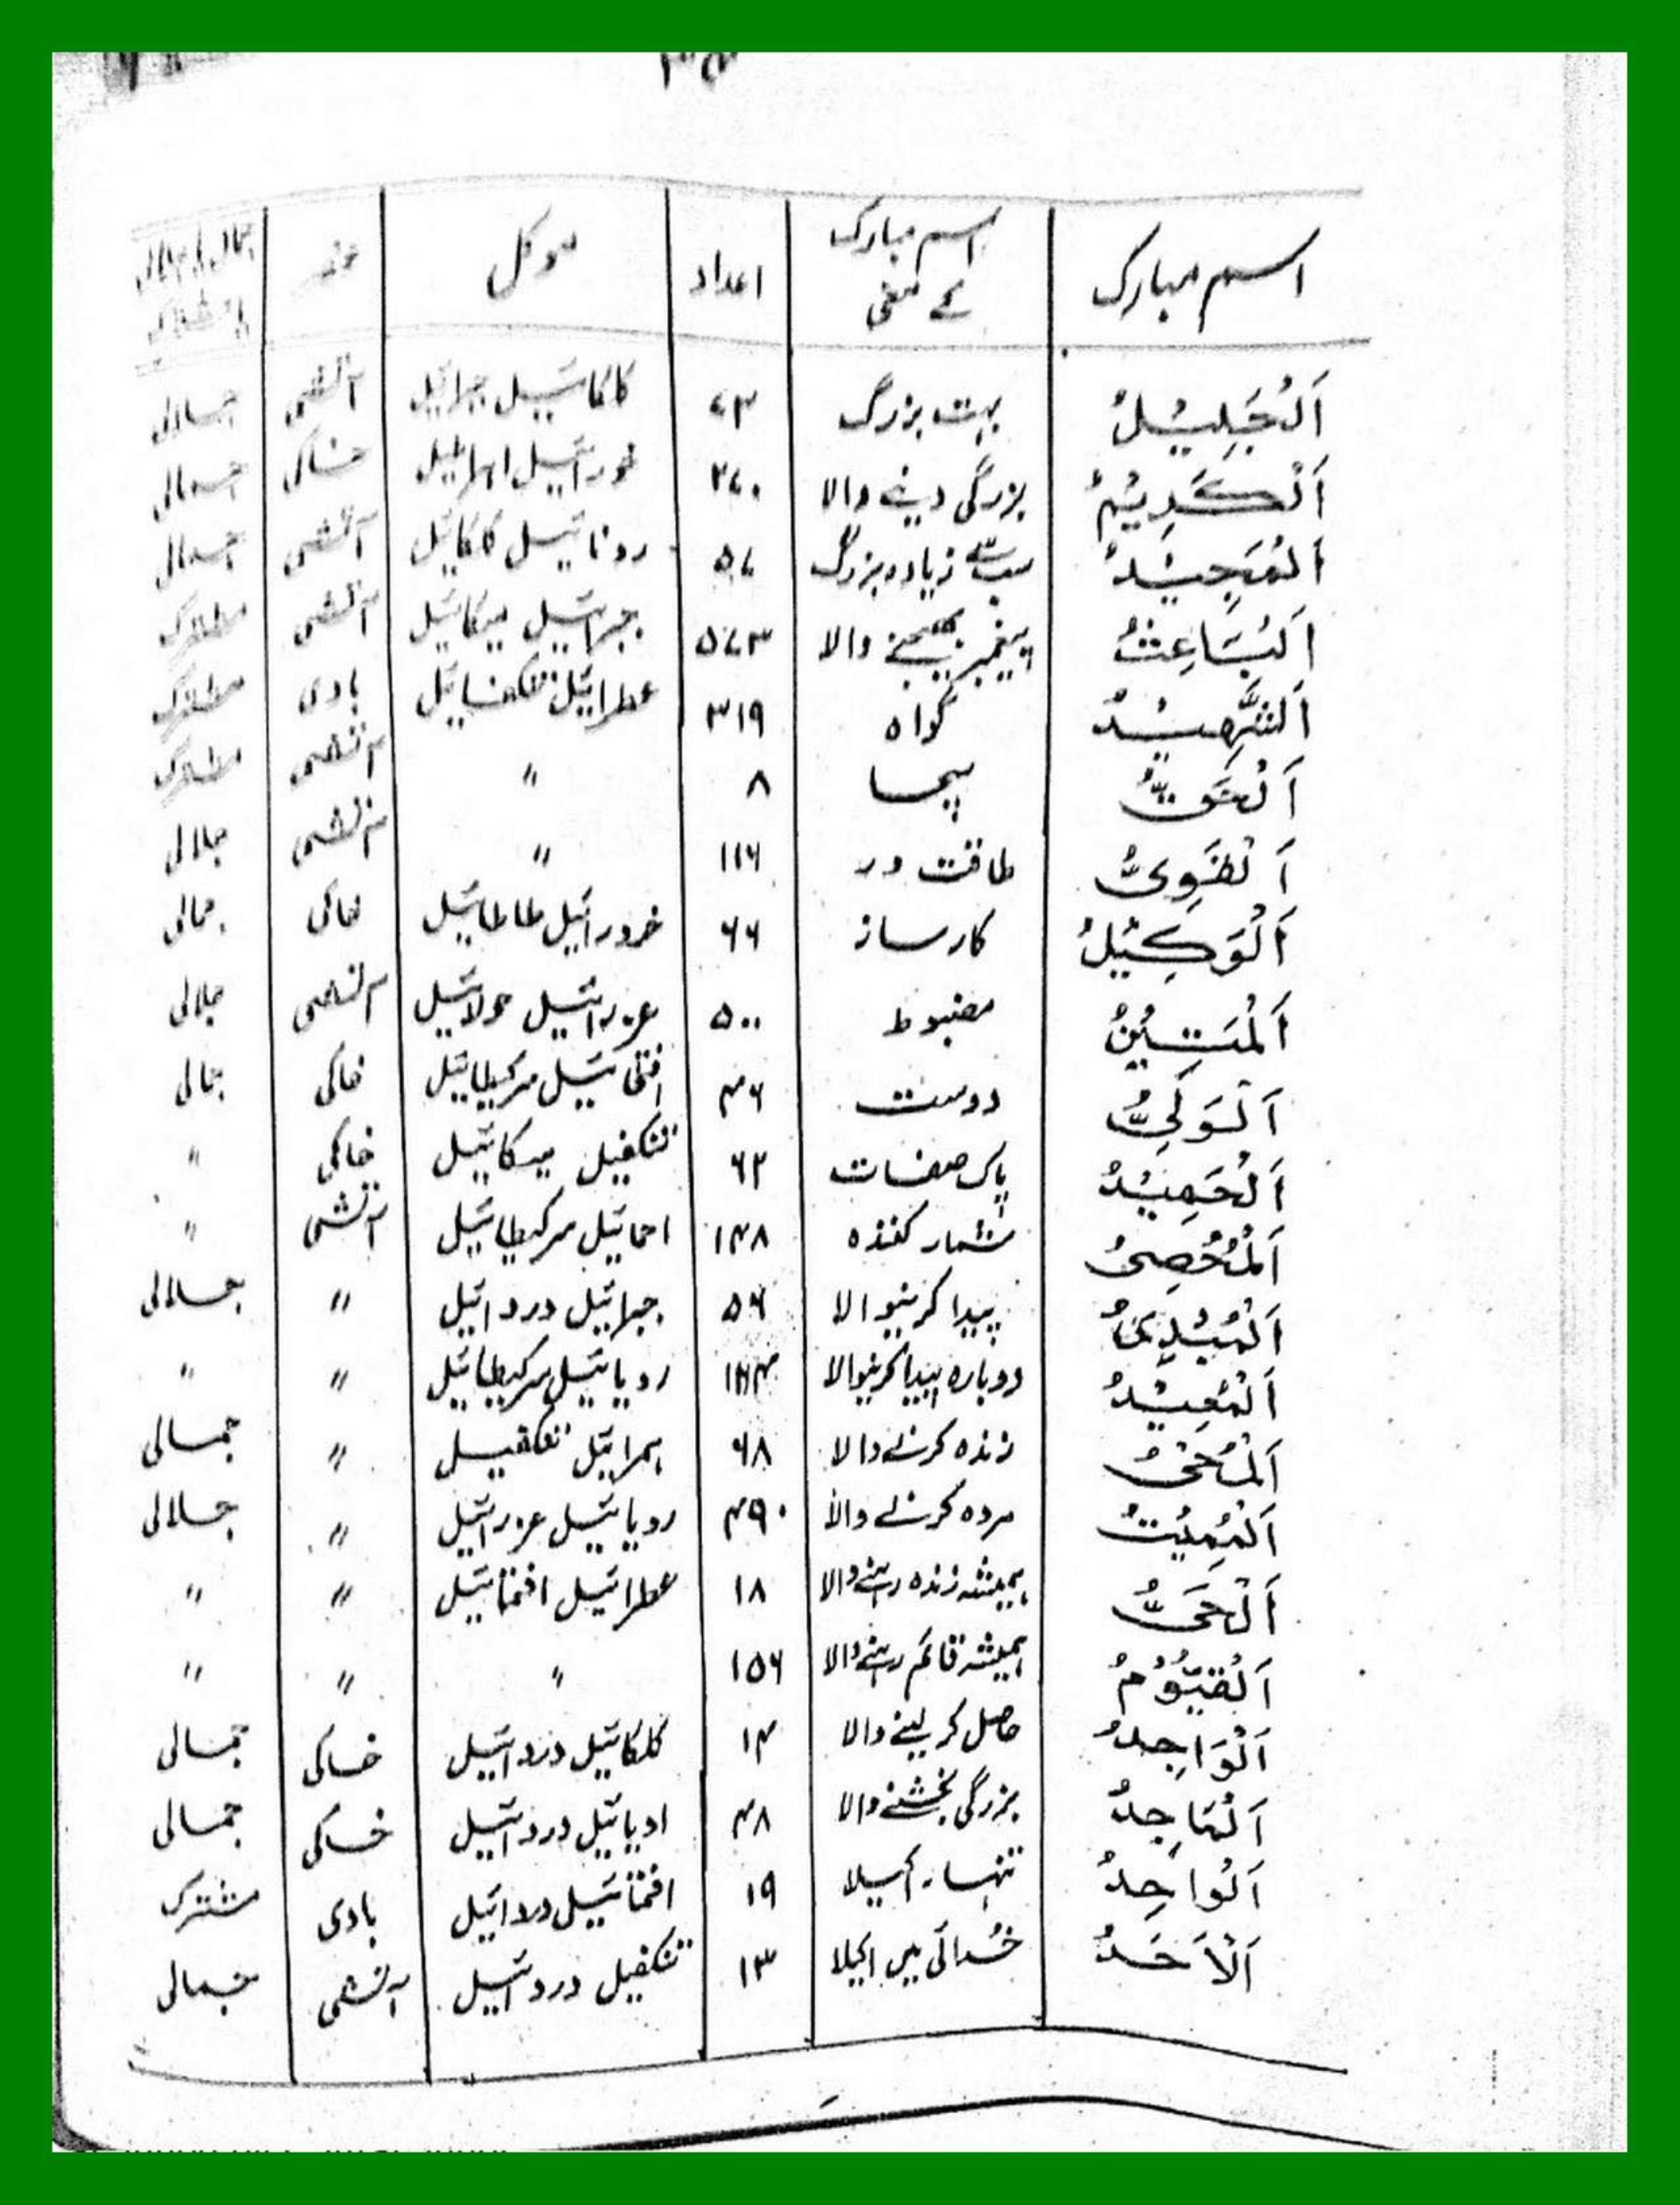 اسم مبارک اسم مبارک کے معنی اعداد موکل عنصر جمالی یا جلالی یا مشترک
اَلْجَلِیْلُ بہت بزرگ ۷۳ کاکائیل جبرائیل آتشی جلالی
اَلْکَرِیْمُ بزرگی دینے والا ۲۷۰ خاکی جمالی
اَلْمَجِیْدُ سب سے زیادہ بزرگ ۵۷ رونائیل کاکائیل آتشی جمالی
اَلْبَاعِثُ پیغمبر بھیجنے والا ۵۷۳ جبرائیل میکائیل آتشی مشترک
اَلشَّھِیْدُ گواہ ۳۱۹ عطرائیل بادی مشترک
اَلْحَقُّ سچا ۸ " آتشی مشترک
اَلْقَوِیُّ طاقت ور ۱۱۶ " آتشی جلالی
اَلْوَکِیْلُ کارساز ۶۶ خرورائیل طاطائیل خاکی جمالی
اَلْمَتِیْنُ مضبوط ۵۰۰ عزرائیل حولائیل آتشی جلالی
اَلْوَلِیُّ دوست ۴۶ سرکیطائیل خاکی جمالی
اَلْحَمِیْدُ پاک صفات ۶۲ تنکفیل میکائیل خاکی "
اَلْمُحْصِیُ شمار کنندہ ۱۴۸ احمائیل سرکیطائیل آتشی "
اَلْمُبْدِیُٔ پیدا کرنیوالا ۵۶ جبرائیل دردائیل " جلالی
اَلْمُعِیْدُ دوبارہ پیدا کرنیوالا ۱۲۴ رویائیل سرکیطائیل " "
اَلْمُحْیُ زندہ کرنے والا ۶۸ تنکفیل " جمالی
اَلْمُمِیْتُ مردہ کرنے والا ۴۹۰ رویائیل عزرائیل " جلالی
اَلْحَیُّ ہمیشہ زندہ رہنے والا ۱۸ عطرائیل افتمائیل " "
اَلْقَیُّوْمُ ہمیشہ قائم رہنے والا ۱۵۶ " " "
اَلْوَاجِدُ حاصل کر لینے والا ۱۴ کلکائیل دردائیل خاکی جمالی
اَلْمَاجِدُ بزرگی بخشنے والا ۴۸ ادیائیل دردائیل خاکی جمالی
اَلْوَاحِدُ تنہا۔ اکیلا ۱۹ افتمائیل دردائیل بادی مشترک
اَلْاَحَدُ خُدائی میں اکیلا ۱۳ تنکفیل دردائیل آتشی جمالی